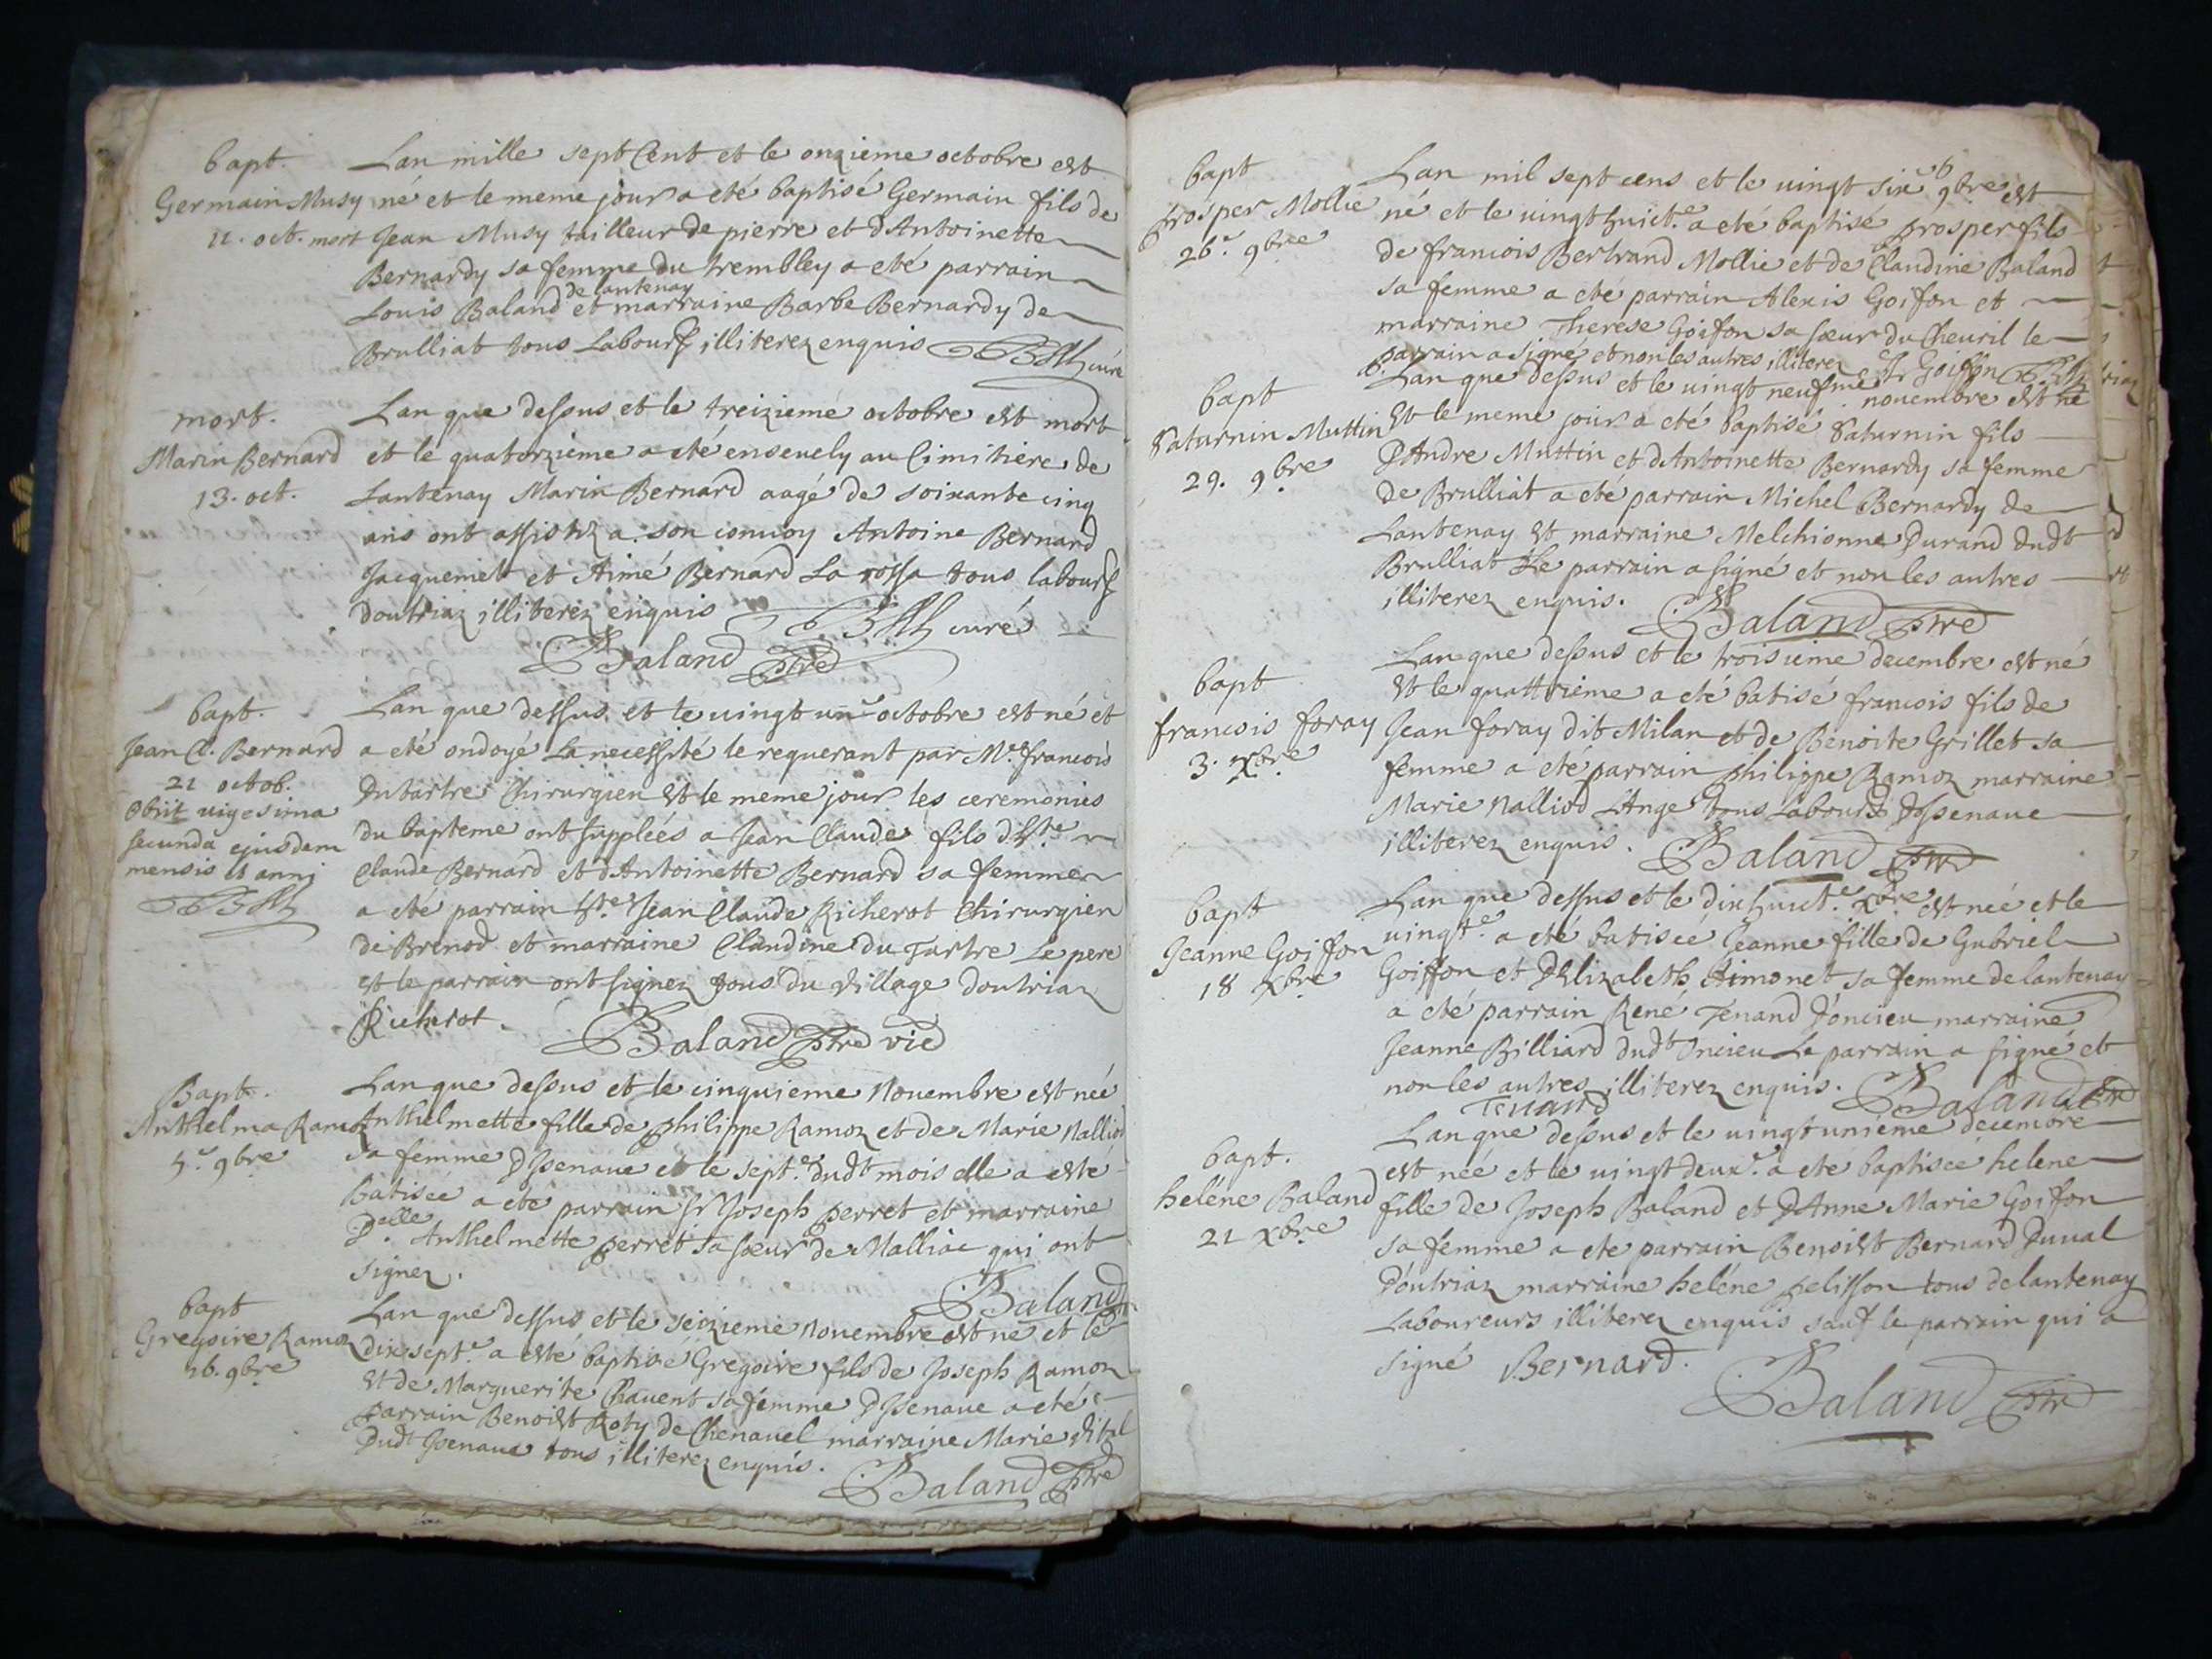 bapt.
Germain Musy
11. oct. mort
Lan mille sept Cent et le onzieme octobre est
né et le meme jour a eté baptisé Germain fils de
Jean Musy tailleur de pierre et dAntoinette
Bernardy sa femme du trembley a eté parrain
de lantenay
Louis Baland et marraine Barbe Bernardy de
Brulliat tous Labours illiterez enquis
curé
mort.
Marin Bernard
13. oct.
Lan que dessus et le treizieme octobre est mort
et le quatorzieme a eté enseuely au Cimitiere de
Lantenay Marin Bernard aagé de soixante cinq
ans ont assistez a son conuoy Antoine Bernard
Jacquemet et Aimé Bernard La rossa tous labours
doutriaz illiterez enquis
curé
Baland ptre
bapt.
Jean Cl. Bernard
21 octob.
Obiit uigesima
secunda ejusdem
mensis et anni
Lan que dessus et le uingt un.e octobre est né et
a eté ondoyé La necessité le requerant par M.e francois
Dutartre Chirurgien et le meme jour les ceremonies
du bapteme ont supplées a Jean Claude fils d'h.te
Claude Bernard et d'Antoinette Bernard sa femme
a eté parrain h.te Jean Claude Richerot Chirurgien
de Brenod et marraine Claudine du Tartre Le pere
et le parrain ont signez tous du village doutriaz
Richerot.
Baland ptre vic
Bapt.
Anthelma Ramoz
5.e 9bre
Lan que dessus et le cinquieme Nouembre est née
Anthelmette fille de philippe Ramoz et de Marie Nalliod
sa femme Dissenaue et le sept.e dudt mois elle a esté
batisée a eté parrain sr Joseph perret et marraine
D.elle Anthelmette perret sa soeur de Nalliac qui ont
signez.
Baland
bapt
Gregoire Ramoz
16. 9bre
Lan que dessus et le seizieme nouembre est né et le
dixsept.e a esté baptisé Gregoire fils de Joseph Ramoz
et de Marguerite Chauent sa femme Dissenaue a eté
parrain Benoist Roty de Chenauel marraine Marie vital
Dudt Issenaue tous illiterez enquis.
Baland ptre
bapt
prosper Mollie
26.e 9bre
Lan mil sept cens et le uingt six.e 9bre est
né et le uingthuict.e a eté baptisé prosper fils
de francois Bertrand Mollie et de Claudine Baland
sa femme a eté parrain Alexis Goifon et
marraine Therese Goifon sa soeur du Cheuril le
parrain a signé et non les autres illiterez
Goiffon
bapt
Saturnin Muttin
29. 9bre
Lan que dessus et le uingt neufme nouembre est né
Et le meme jour a eté baptisé Saturnin fils
D'Andre Muttin et dAntoinette Bernardy sa femme
de Brulliat a eté parrain Michel Bernardy de
Lantenay et marraine Melchionne Durand dudt
Brulliat Le parrain a signé et non les autres
illiterez enquis.
Baland ptre
bapt
francois foray
3. Xbre
Lan que dessus et le troisieme decembre est né
et le quattrieme a eté batisé francois fils de
Jean foray dit Milan et de Benoite Grillet sa
femme a eté parrain philippe Ramoz marraine
Marie Nalliod L'Ange tous Labours Dissenaue
illiterez enquis.
Baland ptre
bapt
Jeanne Goiffon
18 Xbre
Lan que dessus et le dixhuict.e Xbre est née et le
uingt.e a eté batisée Jeanne fille de Gabriel
Goiffon et D'Elizabeth Aimonet sa femme de lantenay
a eté parrain René Tenand D'oncieu marraine
Jeanne Billiard dudt Oncieu Le parrain a signé et
non les autres illiterez enquis.
Baland ptre
Tenand
bapt.
heléne Baland
21 Xbre
Lan que dessus et le uingt unieme decembre
est née et le uingt deux.e a eté baptisée helene
fille de Joseph Baland et D'Anne Marie Goiffon
sa femme a eté parrain Benoist Bernard Duual
D'outriaz marraine heléne pelisson tous de lantenay
Laboureurs illiterez enquis sauf le parrain qui a
signé Bernard.
Baland ptre